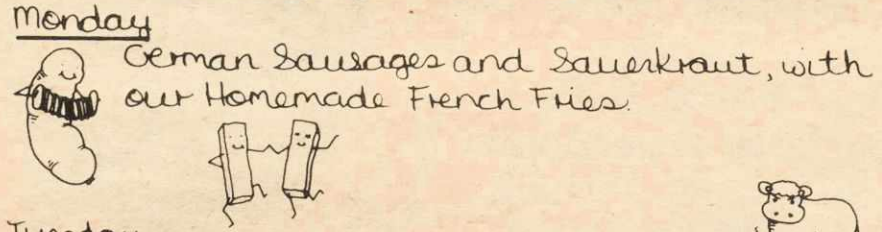 Monday
German Sausages and Sauerkraut, with
our Homemade French Fries.
Tuesday